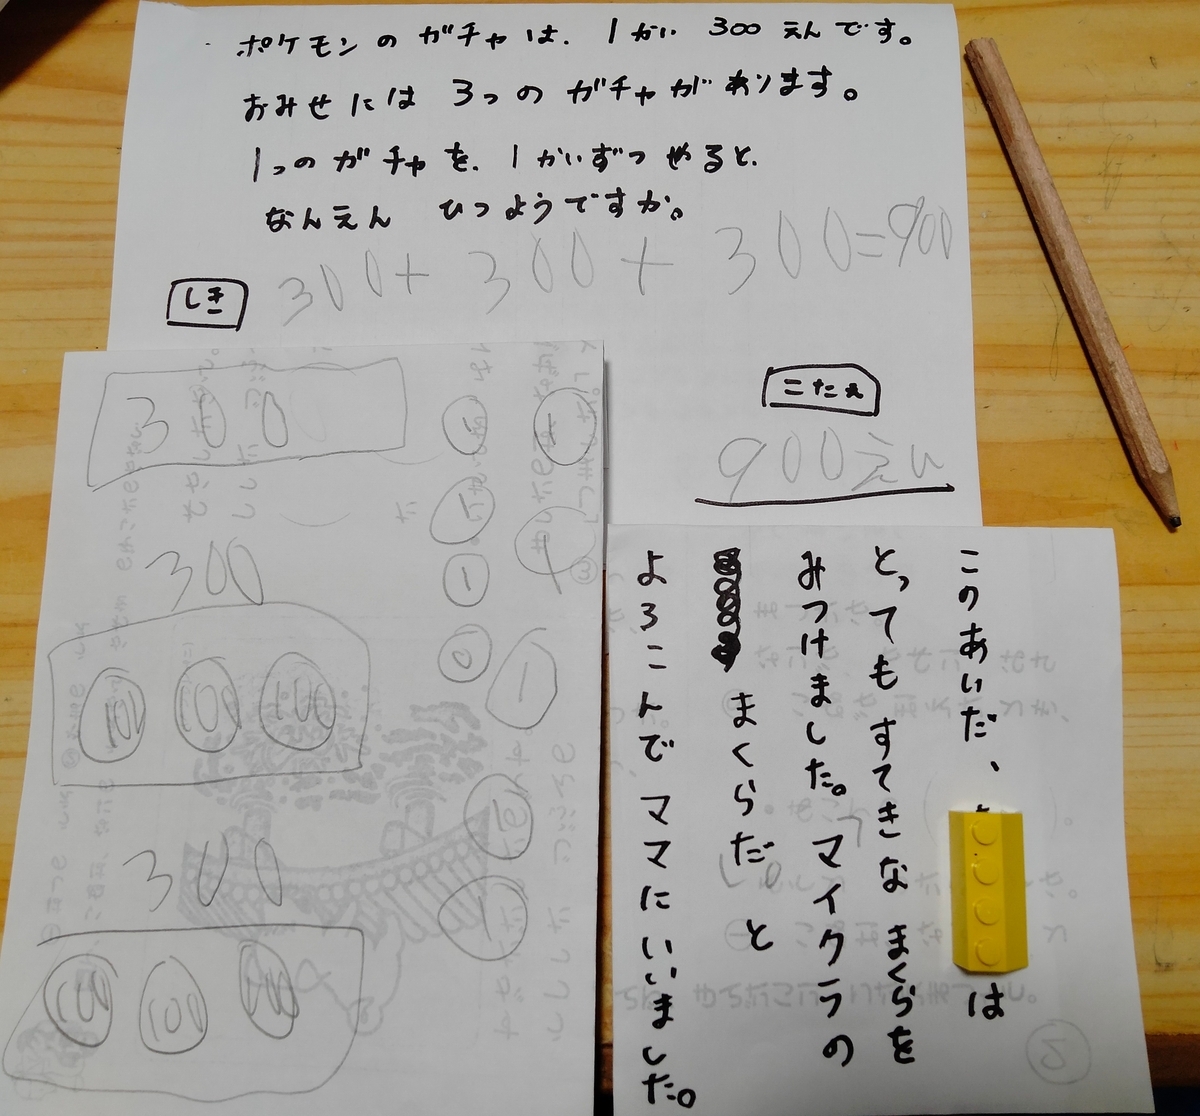 ポケモンのガチャは、1かい 300えんです。
おみせには 3つの ガチャが あります。
1つの ガチャを、1かいずつ やると、
なんえん ひつようですか。
しき
300+ 300 + 300=900
こたえ
900えん
300
300
100 100 100
300
100 100 100
このあいだ、
は
とっても すてきな まくらを
みつけました。マイクラの
まくらだ と
よろこんで ママに いいました。